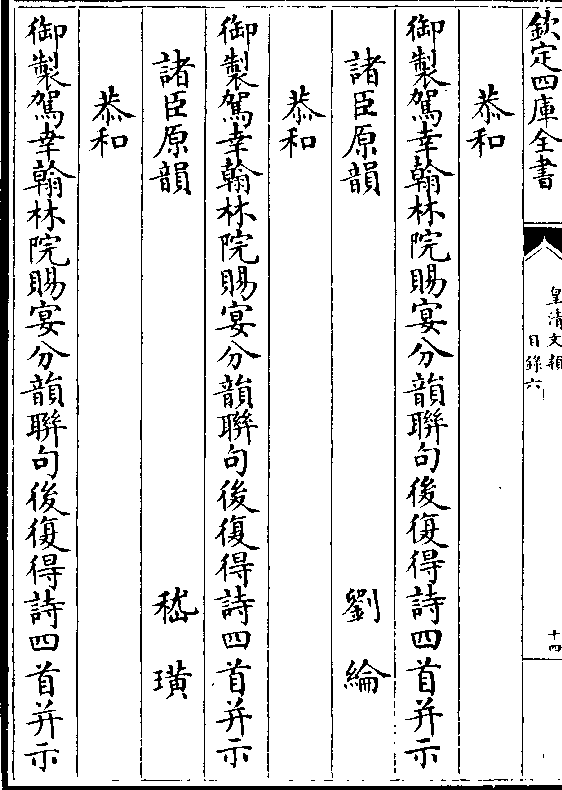 欽定四庫全書
皇清文穎
目錄六
十四
恭和
御製駕幸翰林院賜宴分韻聯句後復得詩四首并示
諸臣原韻　劉綸
恭和
御製駕幸翰林院賜宴分韻聯句後復得詩四首并示
諸臣原韻　嵇璜
恭和
御製駕幸翰林院賜宴分韻聯句後復得詩四首并示